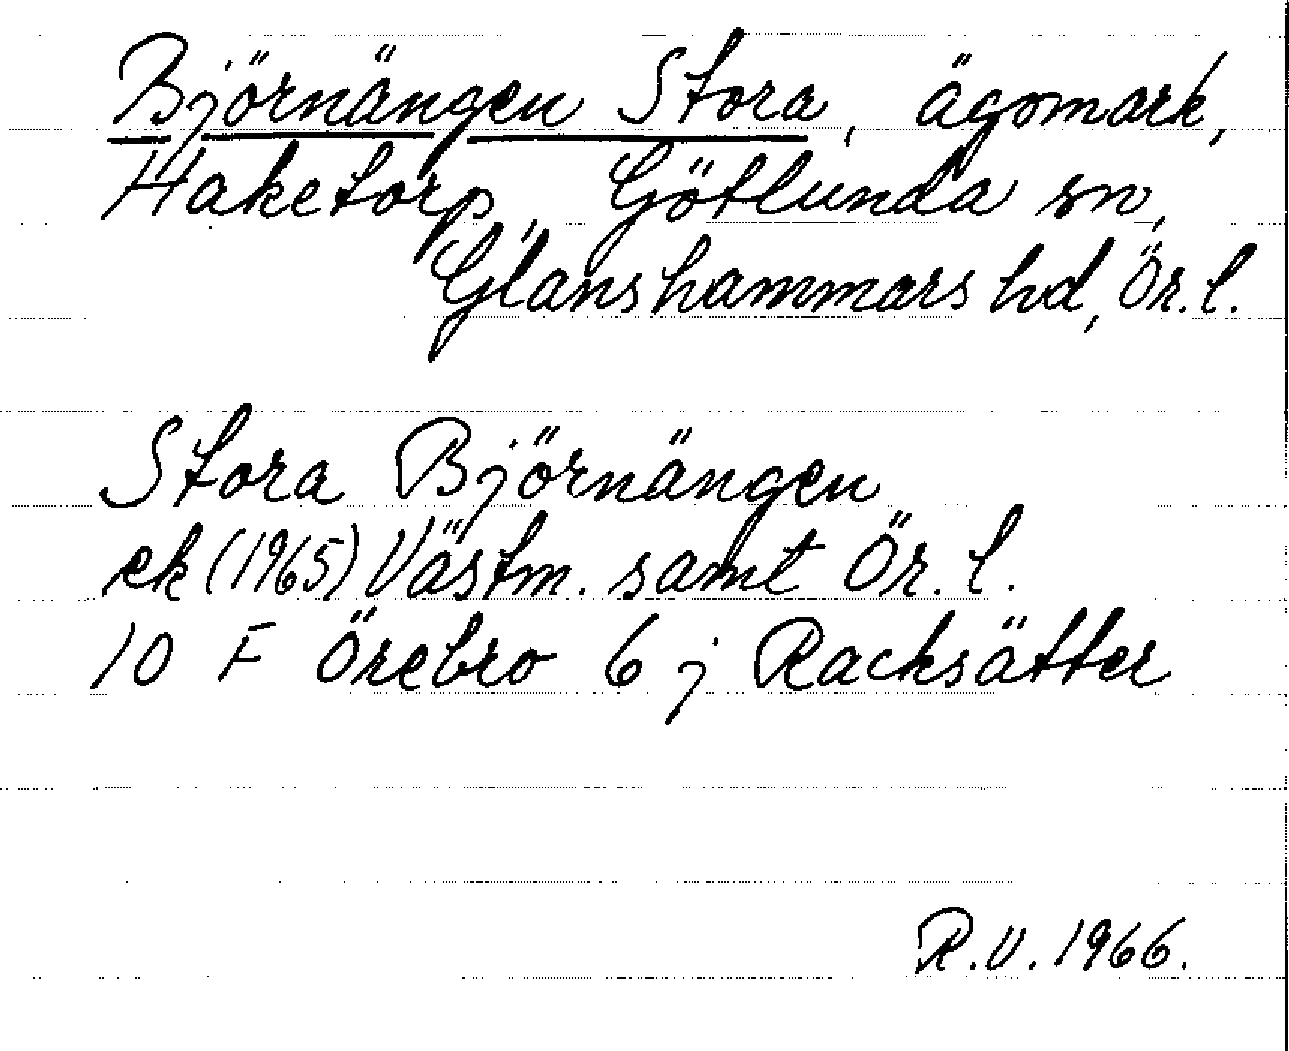 Björnängen Stora, ägomark,
Haketorp, Götlunda sn,
Glanshammars hd, Ör. l.
Stora Björnängen
ek (1965) Västm. samt Ör. l.
10 F Örebro 6 j Racksätter
R.U. 1966.